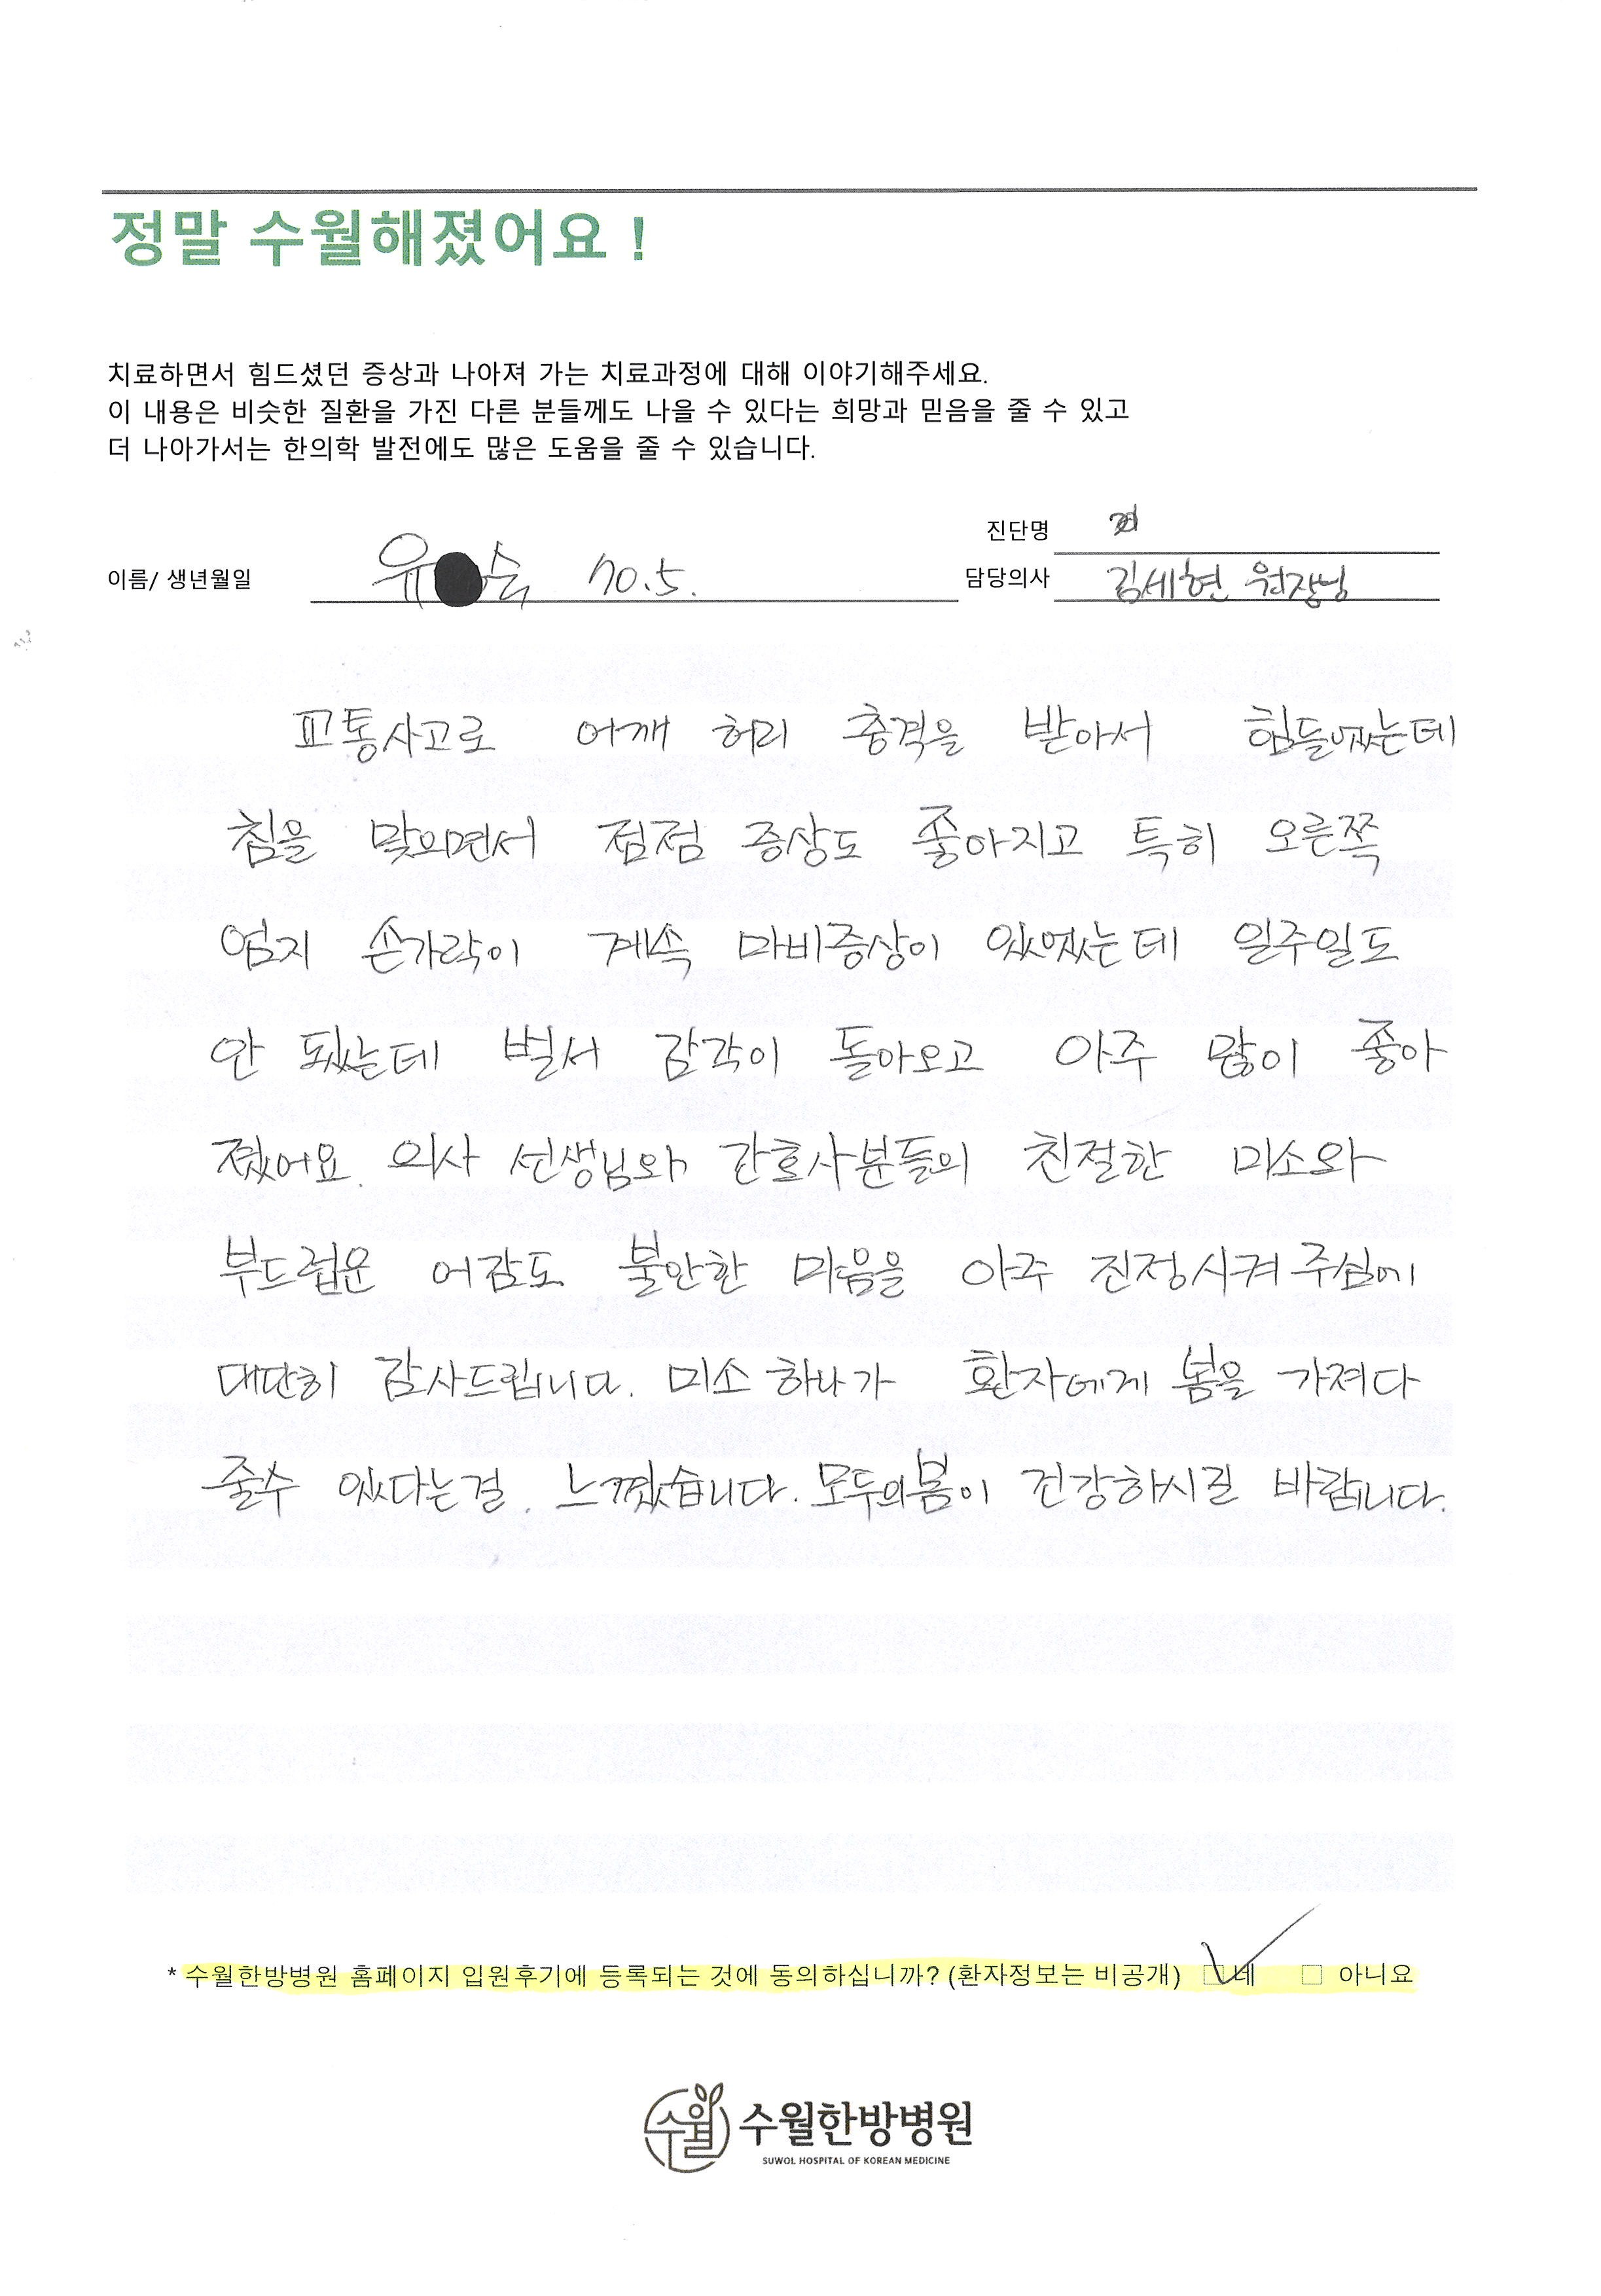 정말 수월해졌어요 !
치료하면서 힘드셨던 증상과 나아져 가는 치료과정에 대해 이야기해주세요.
이 내용은 비슷한 질환을 가진 다른 분들께도 나을 수 있다는 희망과 믿음을 줄 수 있고
더 나아가서는 한의학 발전에도 많은 도움을 줄 수 있습니다.
진단명
이름/ 생년월일 유 숙 70.5. 담당의사 김세현 원장님
교통사고로 어깨 허리 충격을 받아서 힘들었는데
침을 맞으면서 점점 증상도 좋아지고 특히 오른쪽
엄지 손가락이 계속 마비증상이 있었는데 일주일도
안 됬는데 벌써 감각이 돌아오고 아주 많이 좋아
졌어요. 의사 선생님와 간호사분들의 친절한 미소와
부드럽운 어감도 불안한 마음을 아주 진정시켜 주심에
대단히 감사드립니다. 미소 하나가 환자에게 봄을 가져다
줄수 있다는걸. 느꼈습니다. 모두의봄이 건강하시길 바랍니다.
* 수월한방병원 홈페이지 입원후기에 등록되는 것에 동의하십니까? (환자정보는 비공개) 네 아니요
수월 수월한방병원
SUWOL HOSPITAL OF KOREAN MEDICINE